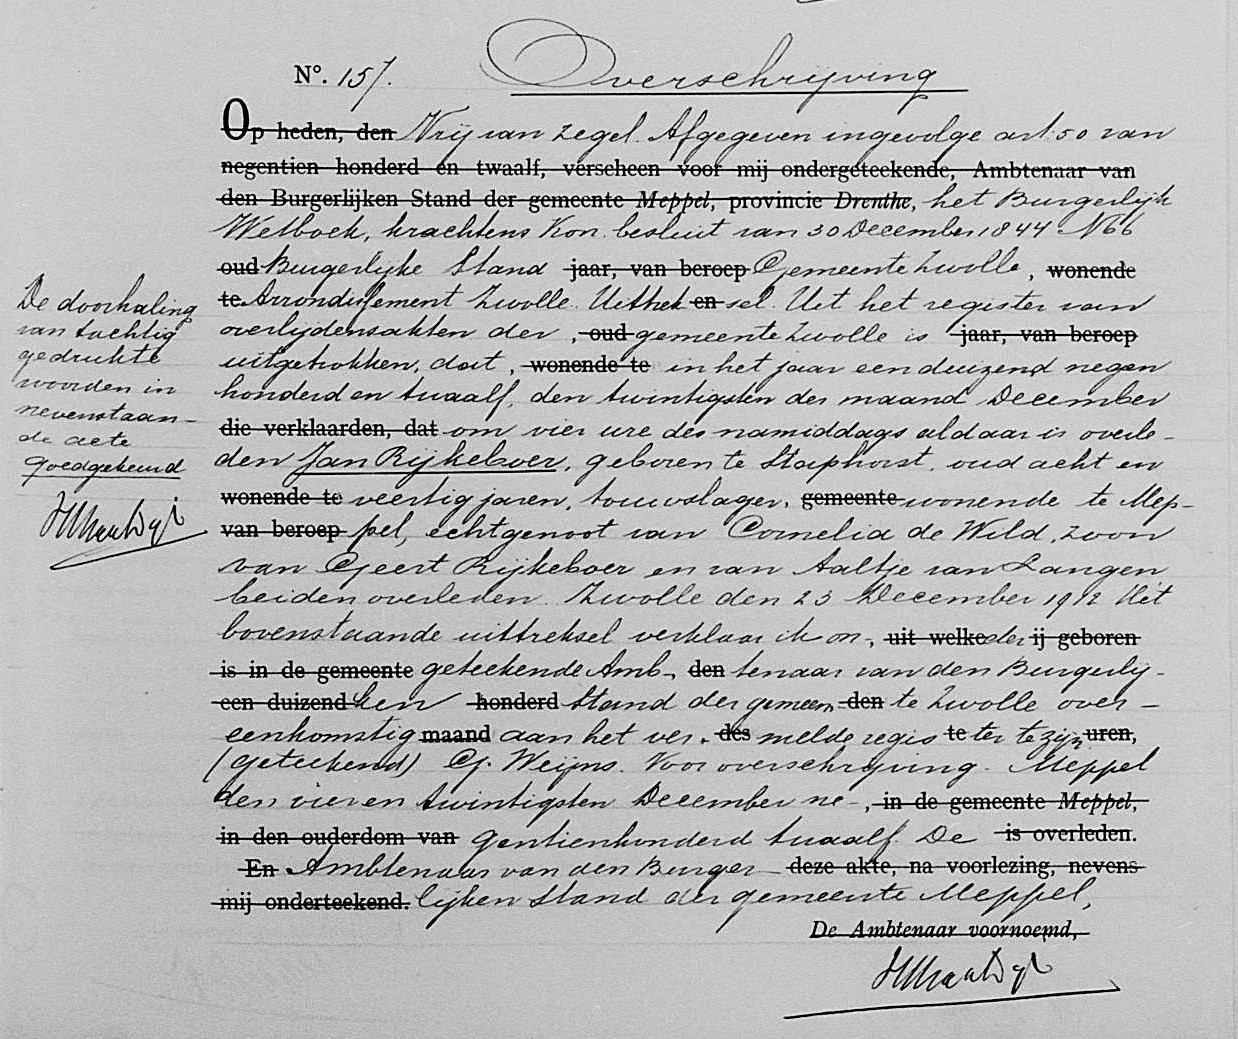 Nº. 157. Overschrijving
Op heden, den Vrij van zegel. Afgegeven ingevolge art. 50 van
negentien honderd en twaalf, verscheen voor mij ondergeteekende, Ambtenaar van
den Burgerlijken Stand der gemeente Meppel, provincie Drenthe, het Burgerlijk
Wetboek, krachtens Kon. besluit van 30 December 1844 N 66
oud Burgerlijke Stand jaar, van beroep Gemeente Zwolle, wonende
te Arrondissement Zwolle. Uittrek en sel. Uit het register van
overlijdensakten der, oud gemeente Zwolle is jaar, van beroep
uitgetrokken, dat, wonende te in het jaar een duizend negen
honderd en twaalf, den twintigsten der maand December
die verklaarden, dat om vier ure des namiddags aldaar is overle-
den Jan Rijkeboer, geboren te Staphorst, oud acht en
wonende te veertig jaren, touwslager, gemeente wonende te Mep-
van beroep pel, echtgenoot van Cornelia de Wild, zoon
van Geert Rijkeboer en van Aaltje van Langen
beiden overleden. Zwolle den 23 December 1912 Uit
bovenstaande uittreksel verklaar ik on-, uit welke der ij geboren
is in de gemeente geteekende Amb-, den tenaar van den Burgerlij-
een duizend ken honderd Stand der gemeen den te Zwolle over-
eenkomstig maand aan het ver- des melde regis te ter te zijn uren,
(geteekend) G. Weijns. Voor overschrijving. Meppel
den vier en twintigsten December ne-, in de gemeente Meppel,
in den ouderdom van gentienhonderd twaalf. De is overleden.
En Ambtenaar van den Burger- deze akte, na voorlezing, nevens
mij onderteekend. lijken Stand der gemeente Meppel,
De Ambtenaar voornoemd,
De doorhaling
van tachtig
gedrukte
woorden in
nevenstaan-
de acte
goedgekeurd